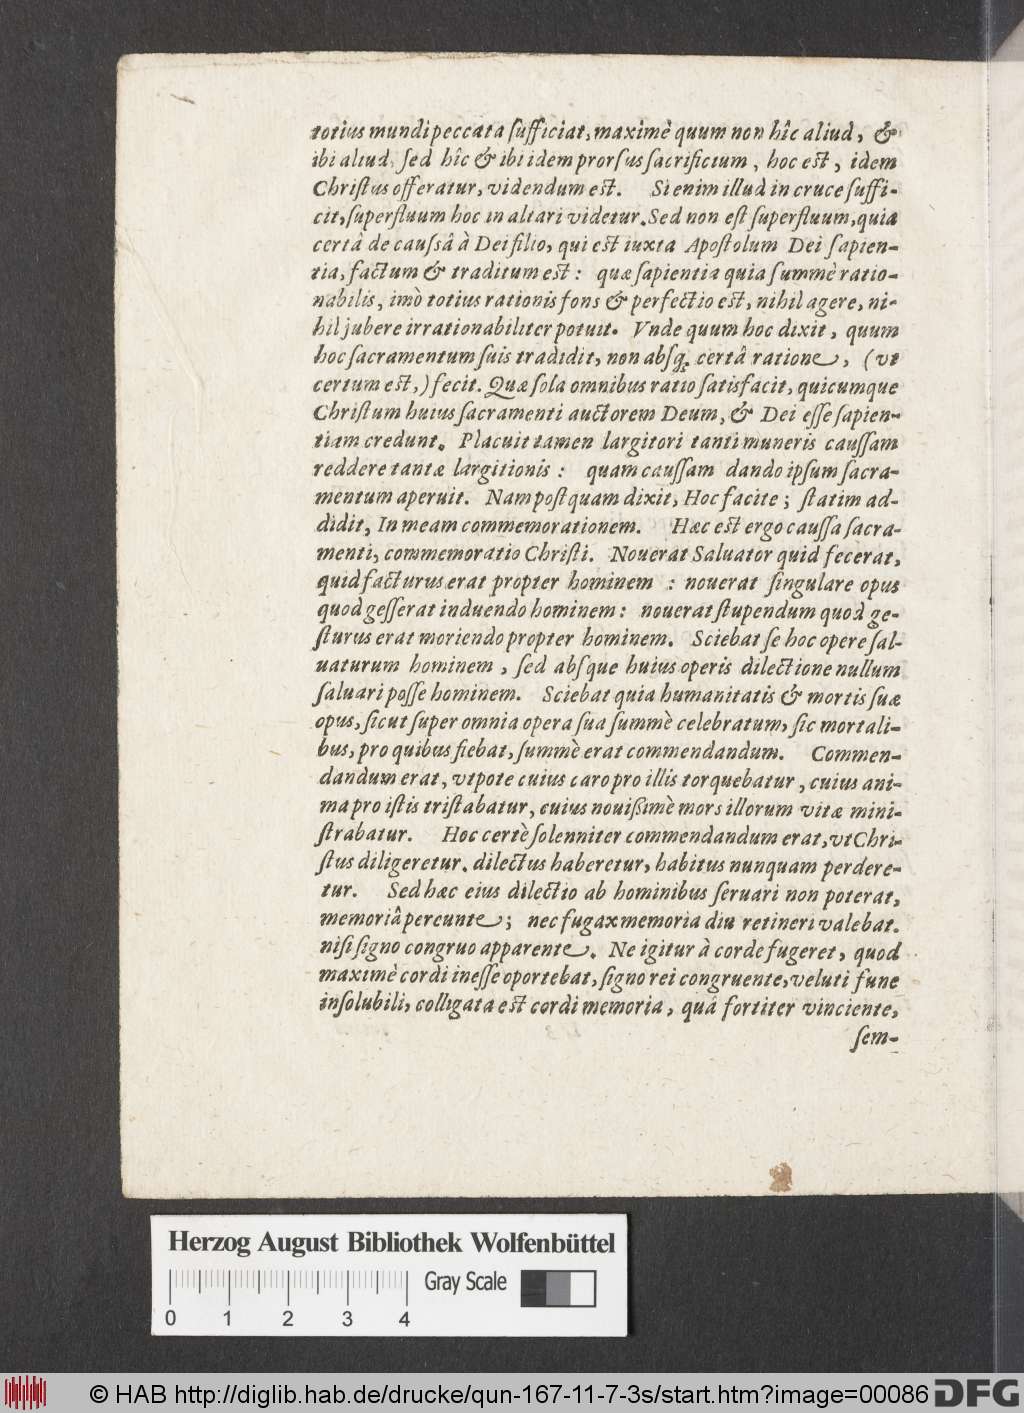 totius mundi peccata sufficiat, maximè quum non hîc aliud, &
ibi aliud, sed hîc & ibi idem prorsus sacrificium, hoc est, idem
Christus offeratur, videndum est. Si enim illud in cruce suffi-
cit, superfluum hoc in altari videtur. Sed non est superfluum, quia
certâ de caussâ à Dei filio, qui est iuxta Apostolum Dei sapien-
tia, factum & traditum est: quæ sapientia quia summè ratio-
nabilis, imò totius rationis fons & perfectio est, nihil agere, ni-
hil jubere irrationabiliter potuit. Vnde quum hoc dixit, quum
hoc sacramentum suis tradidit, non absq; certâ ratione, (vt
certum est,) fecit. Quæ sola omnibus ratio satisfacit, quicumque
Christum huius sacramenti auctorem Deum, & Dei esse sapien-
tiam credunt. Placuit tamen largitori tanti muneris caussam
reddere tantæ largitionis: quam caussam dando ipsum sacra-
mentum aperuit. Nam postquam dixit, Hoc facite; statim ad-
didit, In meam commemorationem. Hæc est ergo caussa sacra-
menti, commemoratio Christi. Nouerat Saluator quid fecerat,
quid facturus erat propter hominem: nouerat singulare opus
quod gesserat induendo hominem: nouerat stupendum quod ge-
sturus erat moriendo propter hominem. Sciebat se hoc opere sal-
uaturum hominem, sed absque huius operis dilectione nullum
saluari posse hominem. Sciebat quia humanitatis & mortis suæ
opus, sicut super omnia opera sua summè celebratum, sic mortali-
bus, pro quibus fiebat, summè erat commendandum. Commen-
dandum erat, vtpote cuius caro pro illis torquebatur, cuius ani-
ma pro istis tristabatur, cuius nouißimè mors illorum vitæ mini-
strabatur. Hoc certè solenniter commendandum erat, vt Chri-
stus diligeretur, dilectus haberetur, habitus nunquam perdere-
tur. Sed hæc eius dilectio ab hominibus seruari non poterat,
memoriâ pereunte; nec fugax memoria diu retineri valebat.
nisi signo congruo apparente. Ne igitur à corde fugeret, quod
maximè cordi inesse oportebat, signo rei congruente, veluti fune
insolubili, colligata est cordi memoria, quâ fortiter vinciente,
sem-
Herzog August Bibliothek Wolfenbüttel
Gray Scale
0 1 2 3 4
© HAB http://diglib.hab.de/drucke/qun-167-11-7-3s/start.htm?image=00086 DFG